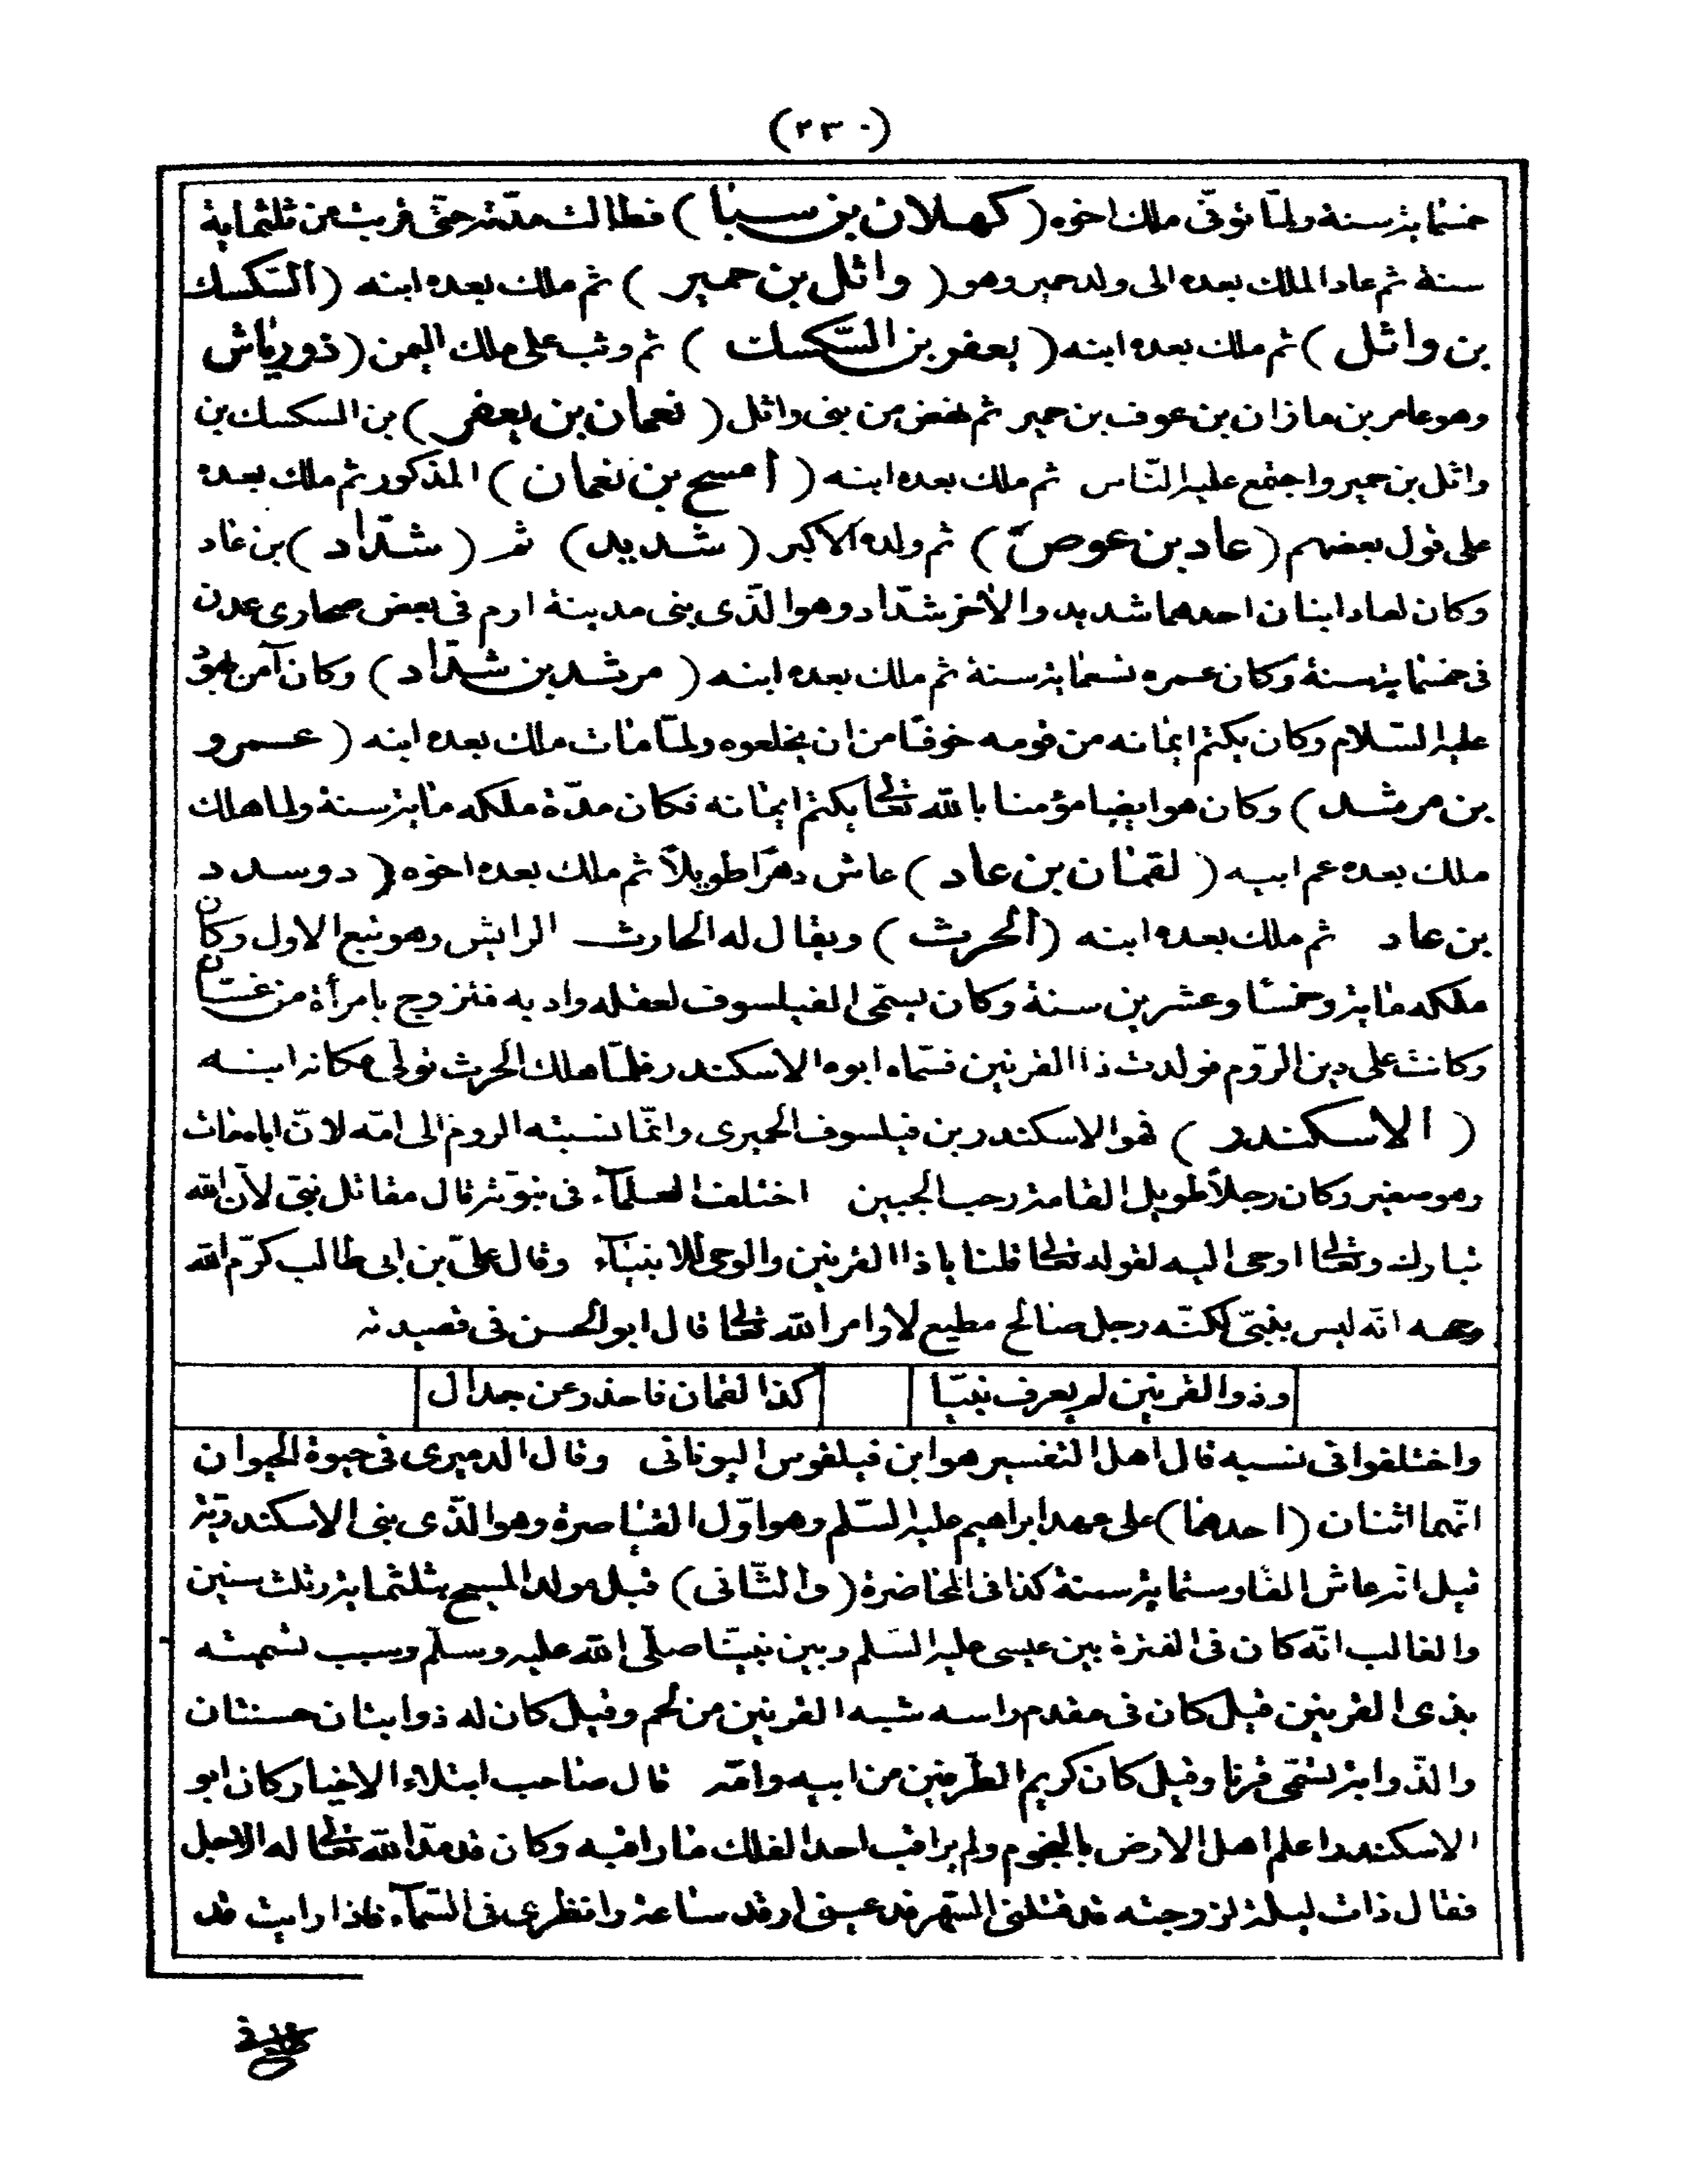 (٢٣٠)
خمسمایة سنة ولما توفى ملك اخوه (كهلان بن سبا) فطالت مدّته حتّى قربت من ثلثمایة
سنة ثم عاد الملك بعده الى ولد حمیر وهو (واثل بن حمیر) ثم ملك بعده ابنه (السكسك
بن واثل) ثم ملك بعده ابنه (یعفر بن السّكسك) ثم وثب على ملك الیمن (ذو ریاش
وهو عامر بن ماذان بن عوف بن حمیر ثم نهض من بنى واثل (نعمان بن یعفر) بن السكسك بن
واثل بن حمیر واجتمع علیه النّاس ثم ملك بعده ابنه (اسمح بن نعمان) المذكور ثم ملك بعده
على قول بعضهم (عاد بن عوص) ثم ولده الاكبر (شدید) ثم (شدّاد) بن عاد
وكان لعاد ابنان احدهما شدید والاخر شدّاد وهو الّذى بنى مدینة ارم فى بعض صحارى عدن
فى خمسمایة سنة وكان عمره تسعمایة سنة ثم ملك بعده ابنه (مرثد بن شدّاد) وكان آمن بهود
علیه السّلام وكان یكتم ایمانه من قومه خوفا من ان یخلعوه ولمّا مات ملك بعده ابنه (عمرو
بن مرثد) وكان هو ایضا مؤمنا بالله تعالى یكتم ایمانه فكان مدّة ملكه مایة سنة ولما هلك
ملك بعده عم ابیه (لقمان بن عاد) عاش دهرًا طویلاً ثم ملك بعده اخوه (دوسدد
بن عاد ثم ملك بعده ابنه (الحرث) ویقال له الحارث الرایش وهو تبع الاول وكان
ملكه مایة وخمسًا وعشرین سنة وكان یسمّى الفیلسوف لعقله وادبه فتزوج بامرأة من غسّان
وكانت على دین الرّوم فولدت ذا القرنین فسمّاه ابوه الاسكندر فلمّا هلك الحرث تولى مكانه ابنه
(الاسكندر) فهو الاسكندر بن فیلسوف الحمیرى وانّما نسبته الروم الى امّه لانّ اباه مات
وهو صغیر وكان رجلاً طویل القامة رحب الجبین اختلف العلمآء فى نبوّته قال مقاتل نبىّ لانّ الله
تبارك وتعالى اوحى الیه لقوله تعالى قلنا یا ذا القرنین والوحى للانبیآء وقال علىّ بن ابى طالب كرّم الله
وجهه انّه لیس بنبىّ لكنّه رجل صالح مطیع لاوامر الله تعالى قال ابو الحسن فى قصیدته
وذو القرنین لم یعرف نبیّا كذا لقمان فاحذر عن جدال
واختلفوا فى نسبه قال اهل التفسیر هو ابن فیلقوس الیونانى وقال الدمیرى فى حیوة الحیوان
انّهما اثنان (احدهما) على عهد ابراهیم علیه السّلم وهو اوّل القیاصرة وهو الّذى بنى الاسكندریّة
قیل انّه عاش الفًا وستمایة سنة كذا فى المحاضرة (والثّانى) قبل مولد المسیح بثلثمایة وثلث سنین
والغالب انّه كان فى الفترة بین عیسى علیه السّلم وبین نبیّنا صلّى الله علیه وسلّم وسبب تسمیته
بذى القرنین قیل كان فى مقدم راسه شبه القرنین من لحم وقیل كان له ذوابتان حسنتان
والذّوابة تسمّى قرنا وقیل كان كریم الطّرفین من ابیه وامّه قال صاحب ابتلاء الاخیار كان ابو
الاسكندر اعلم اهل الارض بالنجوم ولم یراقب احد الفلك ما راقبه وكان قد مدّ الله تعالى له الاجل
فقال ذات لیلة لزوجته قد قتلنى السّهر فدعینى ارقد ساعة وانظرى فى السّمآء فاذا رایت قد